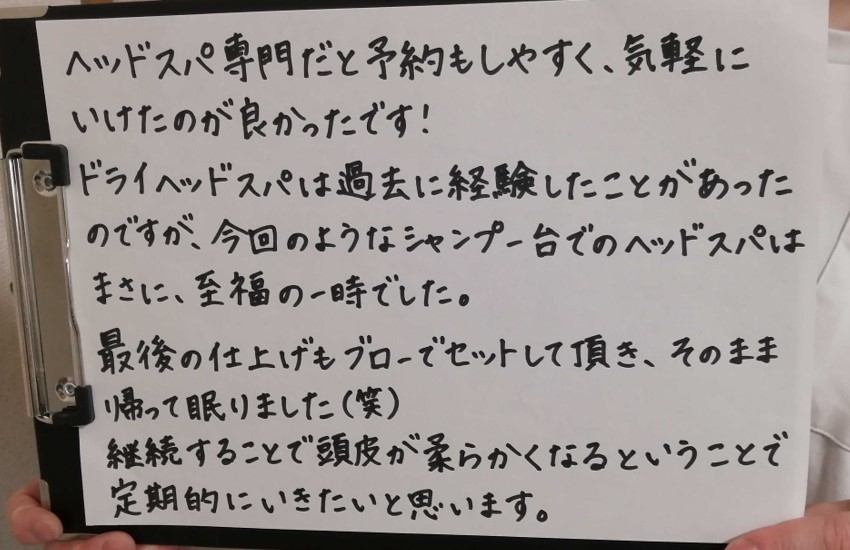 ヘッドスパ専門だと予約もしやすく、気軽に
いけたのが良かったです!
ドライヘッドスパは過去に経験したことがあった
のですが、今回のようなシャンプー台でのヘッドスパは
まさに、至福の一時でした。
最後の仕上げもブローでセットして頂き、そのまま
帰って眠りました(笑)
継続することで頭皮が柔らかくなるということで
定期的にいきたいと思います。